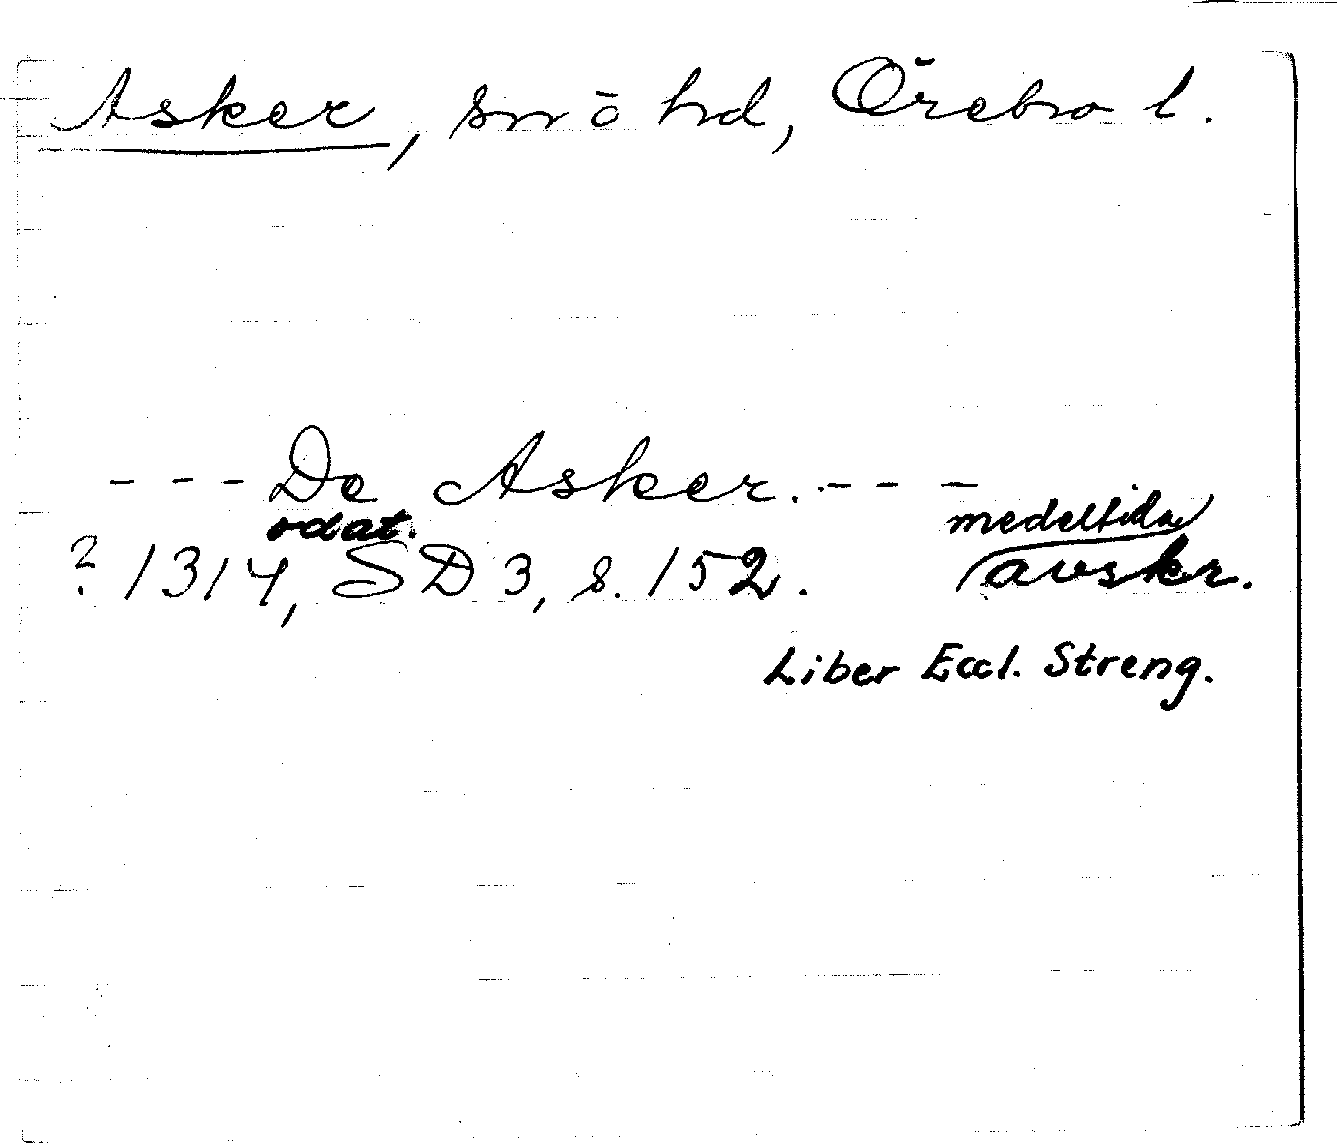 Asker, sn o hd, Örebro l.
- - - De Asker. - - -
odat. medeltida
? 1314, SD 3, s. 152. avskr.
Liber Eccl. Streng.